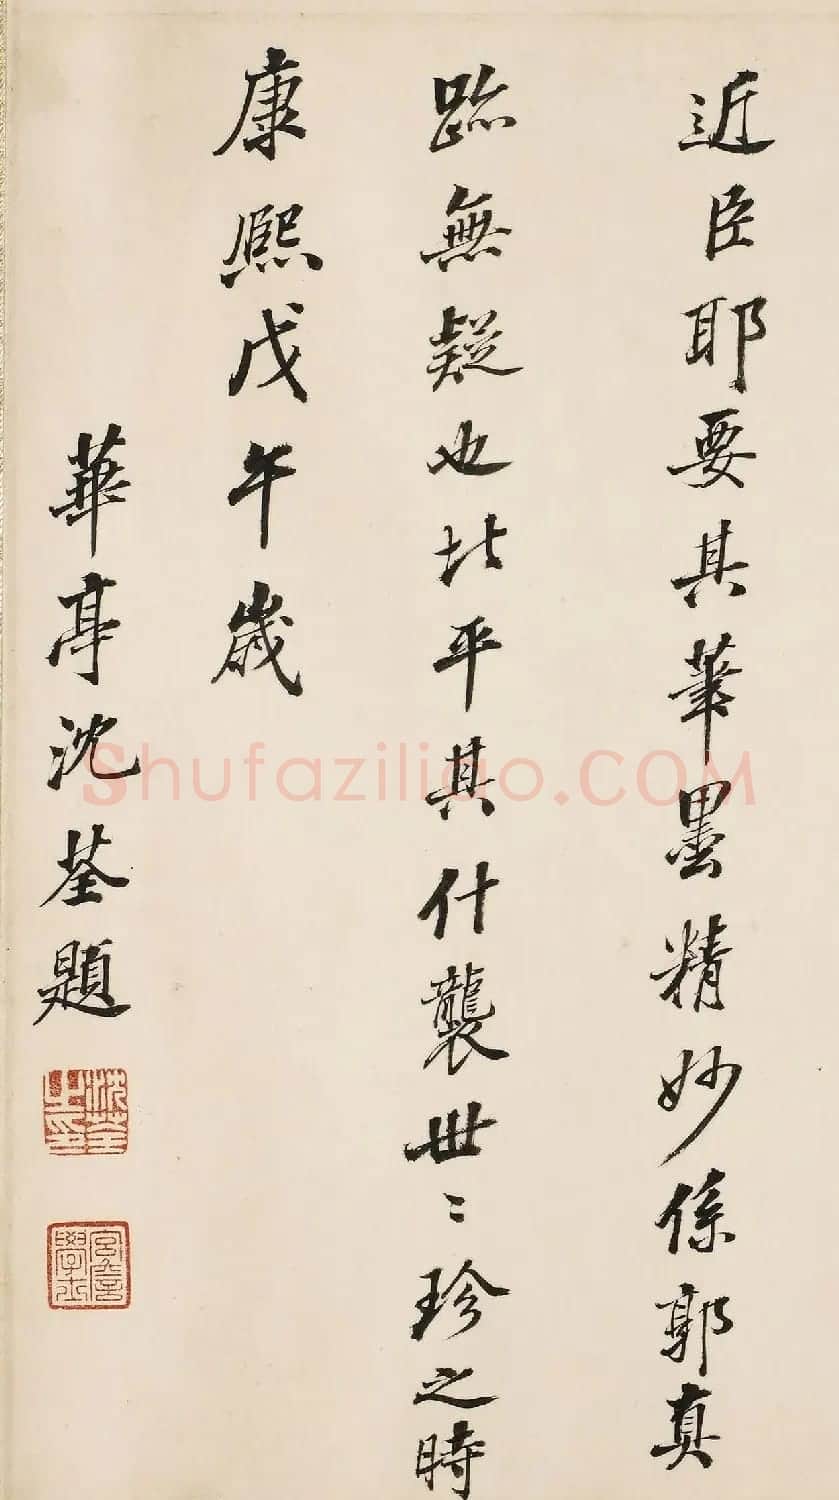 近臣耶要其筆墨精妙係郭真
跡無疑也北平其什襲世〻珍之時
康熙戊午歲
華亭沈荃題
沈荃之印
宮詹學士
Shufaziliao.COM